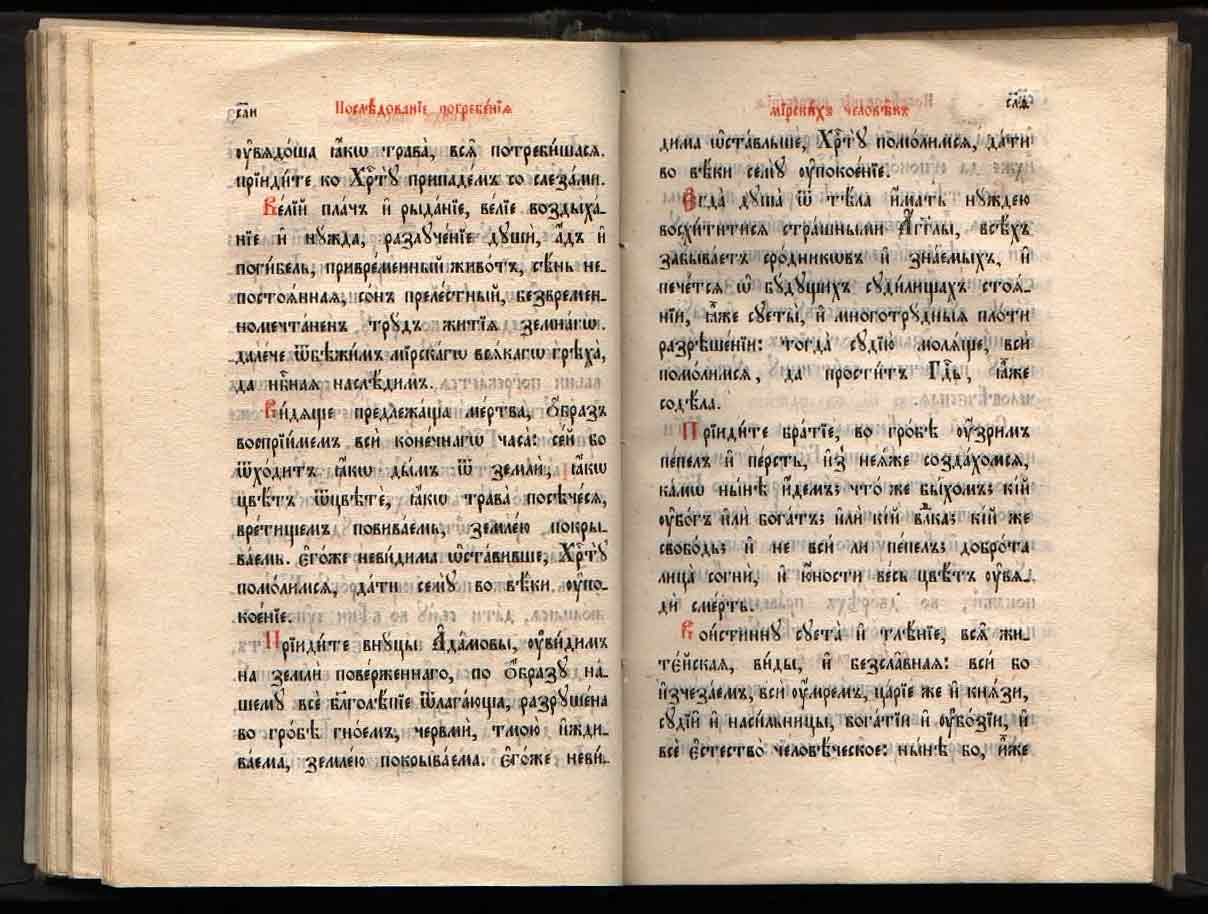 сл҃и
Послѣ́дованїе погребе́нїѧ
ᲂу҆вѧдо́ша ꙗ҆́кѡ трава̀, всѧ̑ потреби́шасѧ.
прїиди́те ко Хрⷭ҇тꙋ̀ припаде́мъ со слеза́ми.
Ве́лїй пла́чь и҆ рыда́нїе, ве́лїе воздыха́-
нїе и҆ нꙋ́жда, разлꙋче́нїе дꙋшѝ, а҆́дъ и҆
поги́бель, привре́менный живо́тъ, сѣ́нь не-
постоѧ́ннаѧ, со́нъ преле́стный, безвре́мен-
номечта́ненъ трꙋ́дъ житїѧ̀ земна́гѡ.
дале́че ѿбѣжи́мъ мїрска́гѡ всѧ́кагѡ грѣха̀,
да нбⷭ҇наѧ наслѣ́димъ.
Ви́дѧще предлежа́ща ме́ртва, ѻ҆́бразъ
воспрїи́мемъ всѝ коне́чнагѡ часа̀: се́й бо
ѿхо́дитъ ꙗ҆́кѡ ды́мъ ѿ землѝ, ꙗ҆́кѡ
цвѣ́тъ ѿцвѣтѐ, ꙗ҆́кѡ трава̀ посѣче́сѧ,
вре́тищемъ повива́емь, земле́ю покры-
ва́емь. Є҆го́же неви́дима ѡ҆ста́вивше, Хрⷭ҇тꙋ̀
помо́лимсѧ, да́ти семꙋ̀ во вѣ́ки ᲂу҆по-
кое́нїе.
Прїиди́те внꙋ́цы А҆да́мовы, ᲂу҆ви́димъ
на землѝ пове́рженнаго, по ѻ҆́бразꙋ на́-
шемꙋ всѐ блг҃олѣ́пїе ѿлага́юща, разрꙋше́на
во гро́бѣ гно́емъ, червьмѝ, тмо́ю и҆жди-
ва́ема, земле́ю покрыва́ема. Є҆го́же неви́-
мїрски́хъ человѣ́къ
сл҃ѳ
дима ѡ҆ста́вльше, Хрⷭ҇тꙋ̀ помо́лимсѧ, да́ти
во вѣ́ки семꙋ̀ ᲂу҆покое́нїе.
Є҆гда̀ дꙋша̀ ѿ тѣ́ла и҆́мать нꙋ́ждею
восхи́титисѧ стра́шными А҆́гг҃лы, всѣ́хъ
забыва́етъ сро́дникѡвъ и҆ зна́емыхъ, и҆
пече́тсѧ ѡ҆ бꙋ́дꙋщихъ сꙋди́лищахъ стоѧ́-
нїи, ꙗ҆́же сꙋеты̀, и҆ многотрꙋ́дныѧ пло́ти
разрѣше́нїи: тогда̀ сꙋдїю̀ молѧ́ще, всѝ
помо́лимсѧ, да прости́тъ Гдⷭ҇ь, ꙗ҆́же
содѣ́ла.
Прїиди́те бра́тїе, во гро́бѣ ᲂу҆́зримъ
пе́пелъ и҆ пе́рсть, и҆з̾ неѧ́же созда́хомсѧ,
ка́мѡ ны́нѣ и҆́демъ; что́ же бы́хомъ; кі́й
ᲂу҆бо́гъ и҆лѝ бога́тъ; и҆лѝ кі́й влⷣка; кі́й же
свобо́дь; и҆ не всѝ ли пе́пелъ; добро́та
лица̀ согнѝ, и҆ ю҆́ности ве́сь цвѣ́тъ ᲂу҆вѧ-
дѝ сме́рть.
Вои́стиннꙋ сꙋета̀ и҆ тлѣ́нїе, всѧ̑ жи-
те́йскаѧ, ви́ды, и҆ безсла́внаѧ: всѝ бо
и҆зчеза́емъ, всѝ ᲂу҆́мремъ, ца́рїе же и҆ кня́зи,
сꙋдїи̑ и҆ наси́льницы, бога́тїи и҆ ᲂу҆бо́зїи, и҆
всѐ є҆стество̀ человѣ́ческое: ны́нѣ бо, и҆̀же